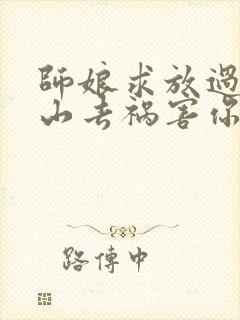 師娘求放過
山去禍害你
路傳中